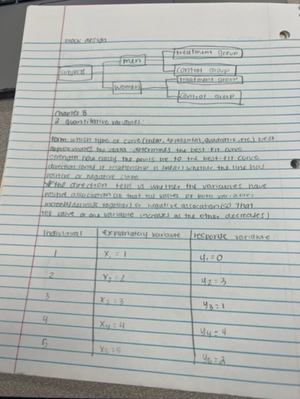 block design
subjects
men
treatment group
control group
women
treatment group
control group
Chapter 8
2 Quantitative variables:
form which type of curve (linear, exponential, quadratic, etc.) best
approximates the data determines the best fit curve
strength how closely the points are to the best-fit curve
direction (only if relationship is linear) whether the line has
positive or negative slope
the direction tells us whether the variables have
positive association (so that the values of both variables
increase/decrease together) or negative association (so that
the value of one variable increases as the other decreases)
Individual explanatory variable response variable
1 x₁ = 1 y₁ = 0
2 x₂ = 2 y₂ = 3
3 x₃ = 3 y₃ = 1
4 x₄ = 4 y₄ = 4
5 x₅ = 5 y₅ = 2